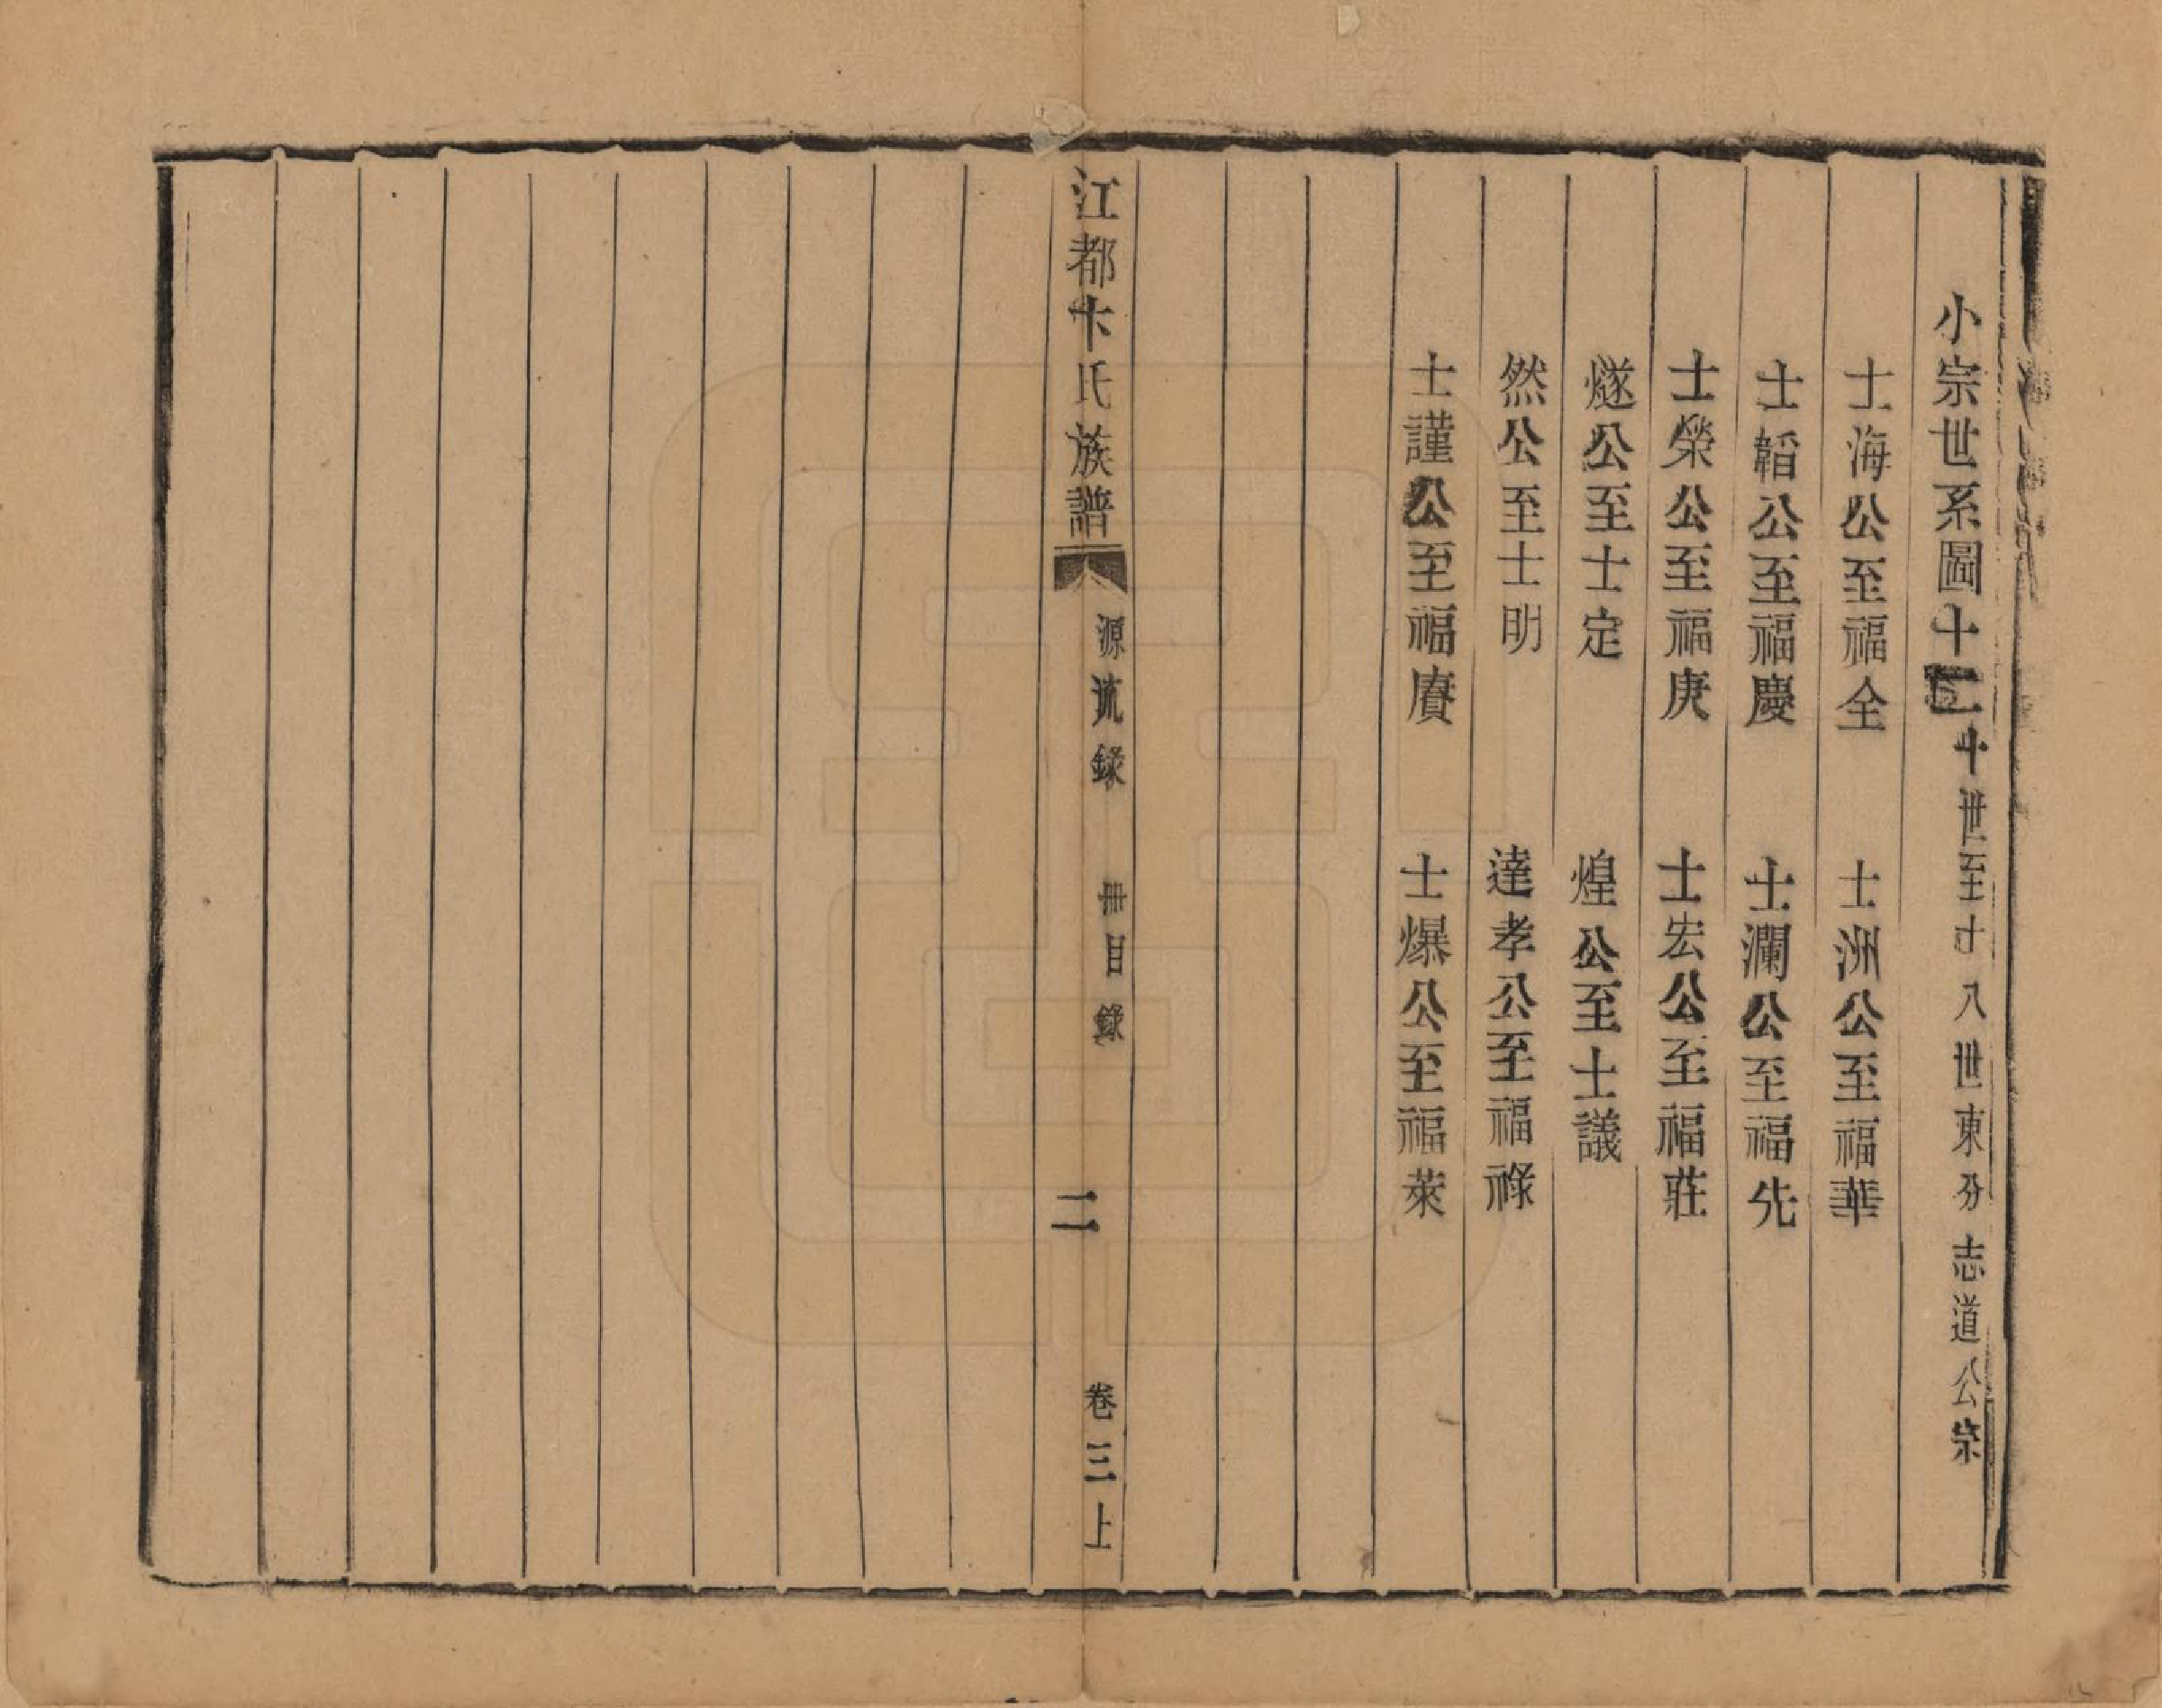 小宗世系圖十二十世至十八世東分志道公宗
士海公至福全　士洲公至福華
士韜公至福慶　士瀾公至福先
士榮公至福庚　士宏公至福莊
燧公至士定　煌公至士議
然公至士明　達孝公至福祿
士謹公至福賡　士爆公至福萊
江都卞氏族譜　源流錄　卌目錄　二　卷三上